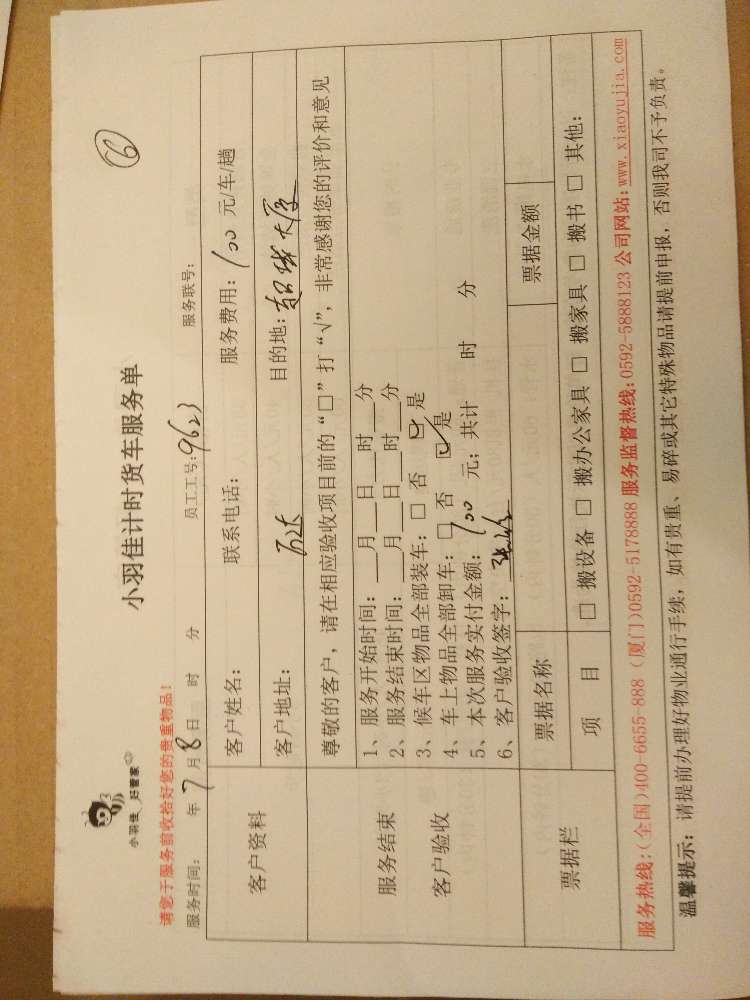 小羽佳 好管家
小羽佳计时货车服务单
⑥
请您于服务前收拾好您的贵重物品！
服务时间： 年7月8日 时 分 员工工号:9623 服务联号：
客户资料 客户姓名： 联系电话： 服务费用：100元/车/趟
客户地址：万达 目的地：
服务结束
客户验收
尊敬的客户，请在相应验收项目前的“□”打“√”，非常感谢您的评价和意见
1、服务开始时间：__月__日__时__分
2、服务结束时间：__月__日__时__分
3、候车区物品全部装车：□ 否 ☑ 是
4、车上物品全部卸车：□ 否 ☑ 是
5、本次服务实付金额：700元；共计 时 分
6、客户验收签字：
票据栏 票据名称 票据金额
项 目 □ 搬设备 □ 搬办公家具 □ 搬家具 □ 搬书 □ 其他：
服务热线：(全国)400-6655-888 (厦门)0592-5178888 服务监督热线:0592-5888123 公司网站：www.xiaoyujia.com
温馨提示：请提前办理好物业通行手续，如有贵重、易碎或其它特殊物品请提前申报，否则我司不予负责。